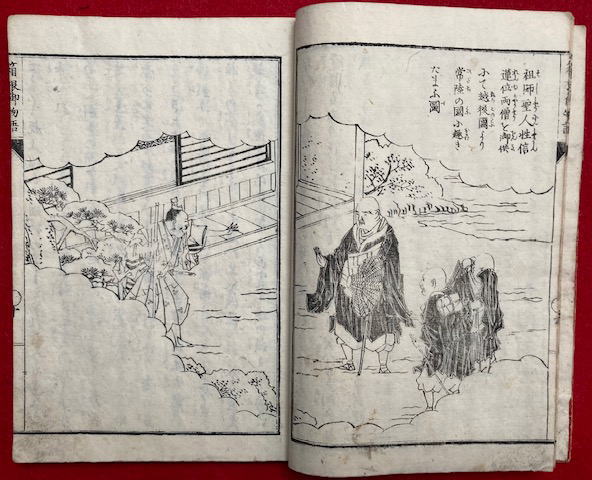 祖師聖人性信
蓮位両僧を御供
にて越後國より
常陸の國に趣き
たまふ圖
箱根御物語